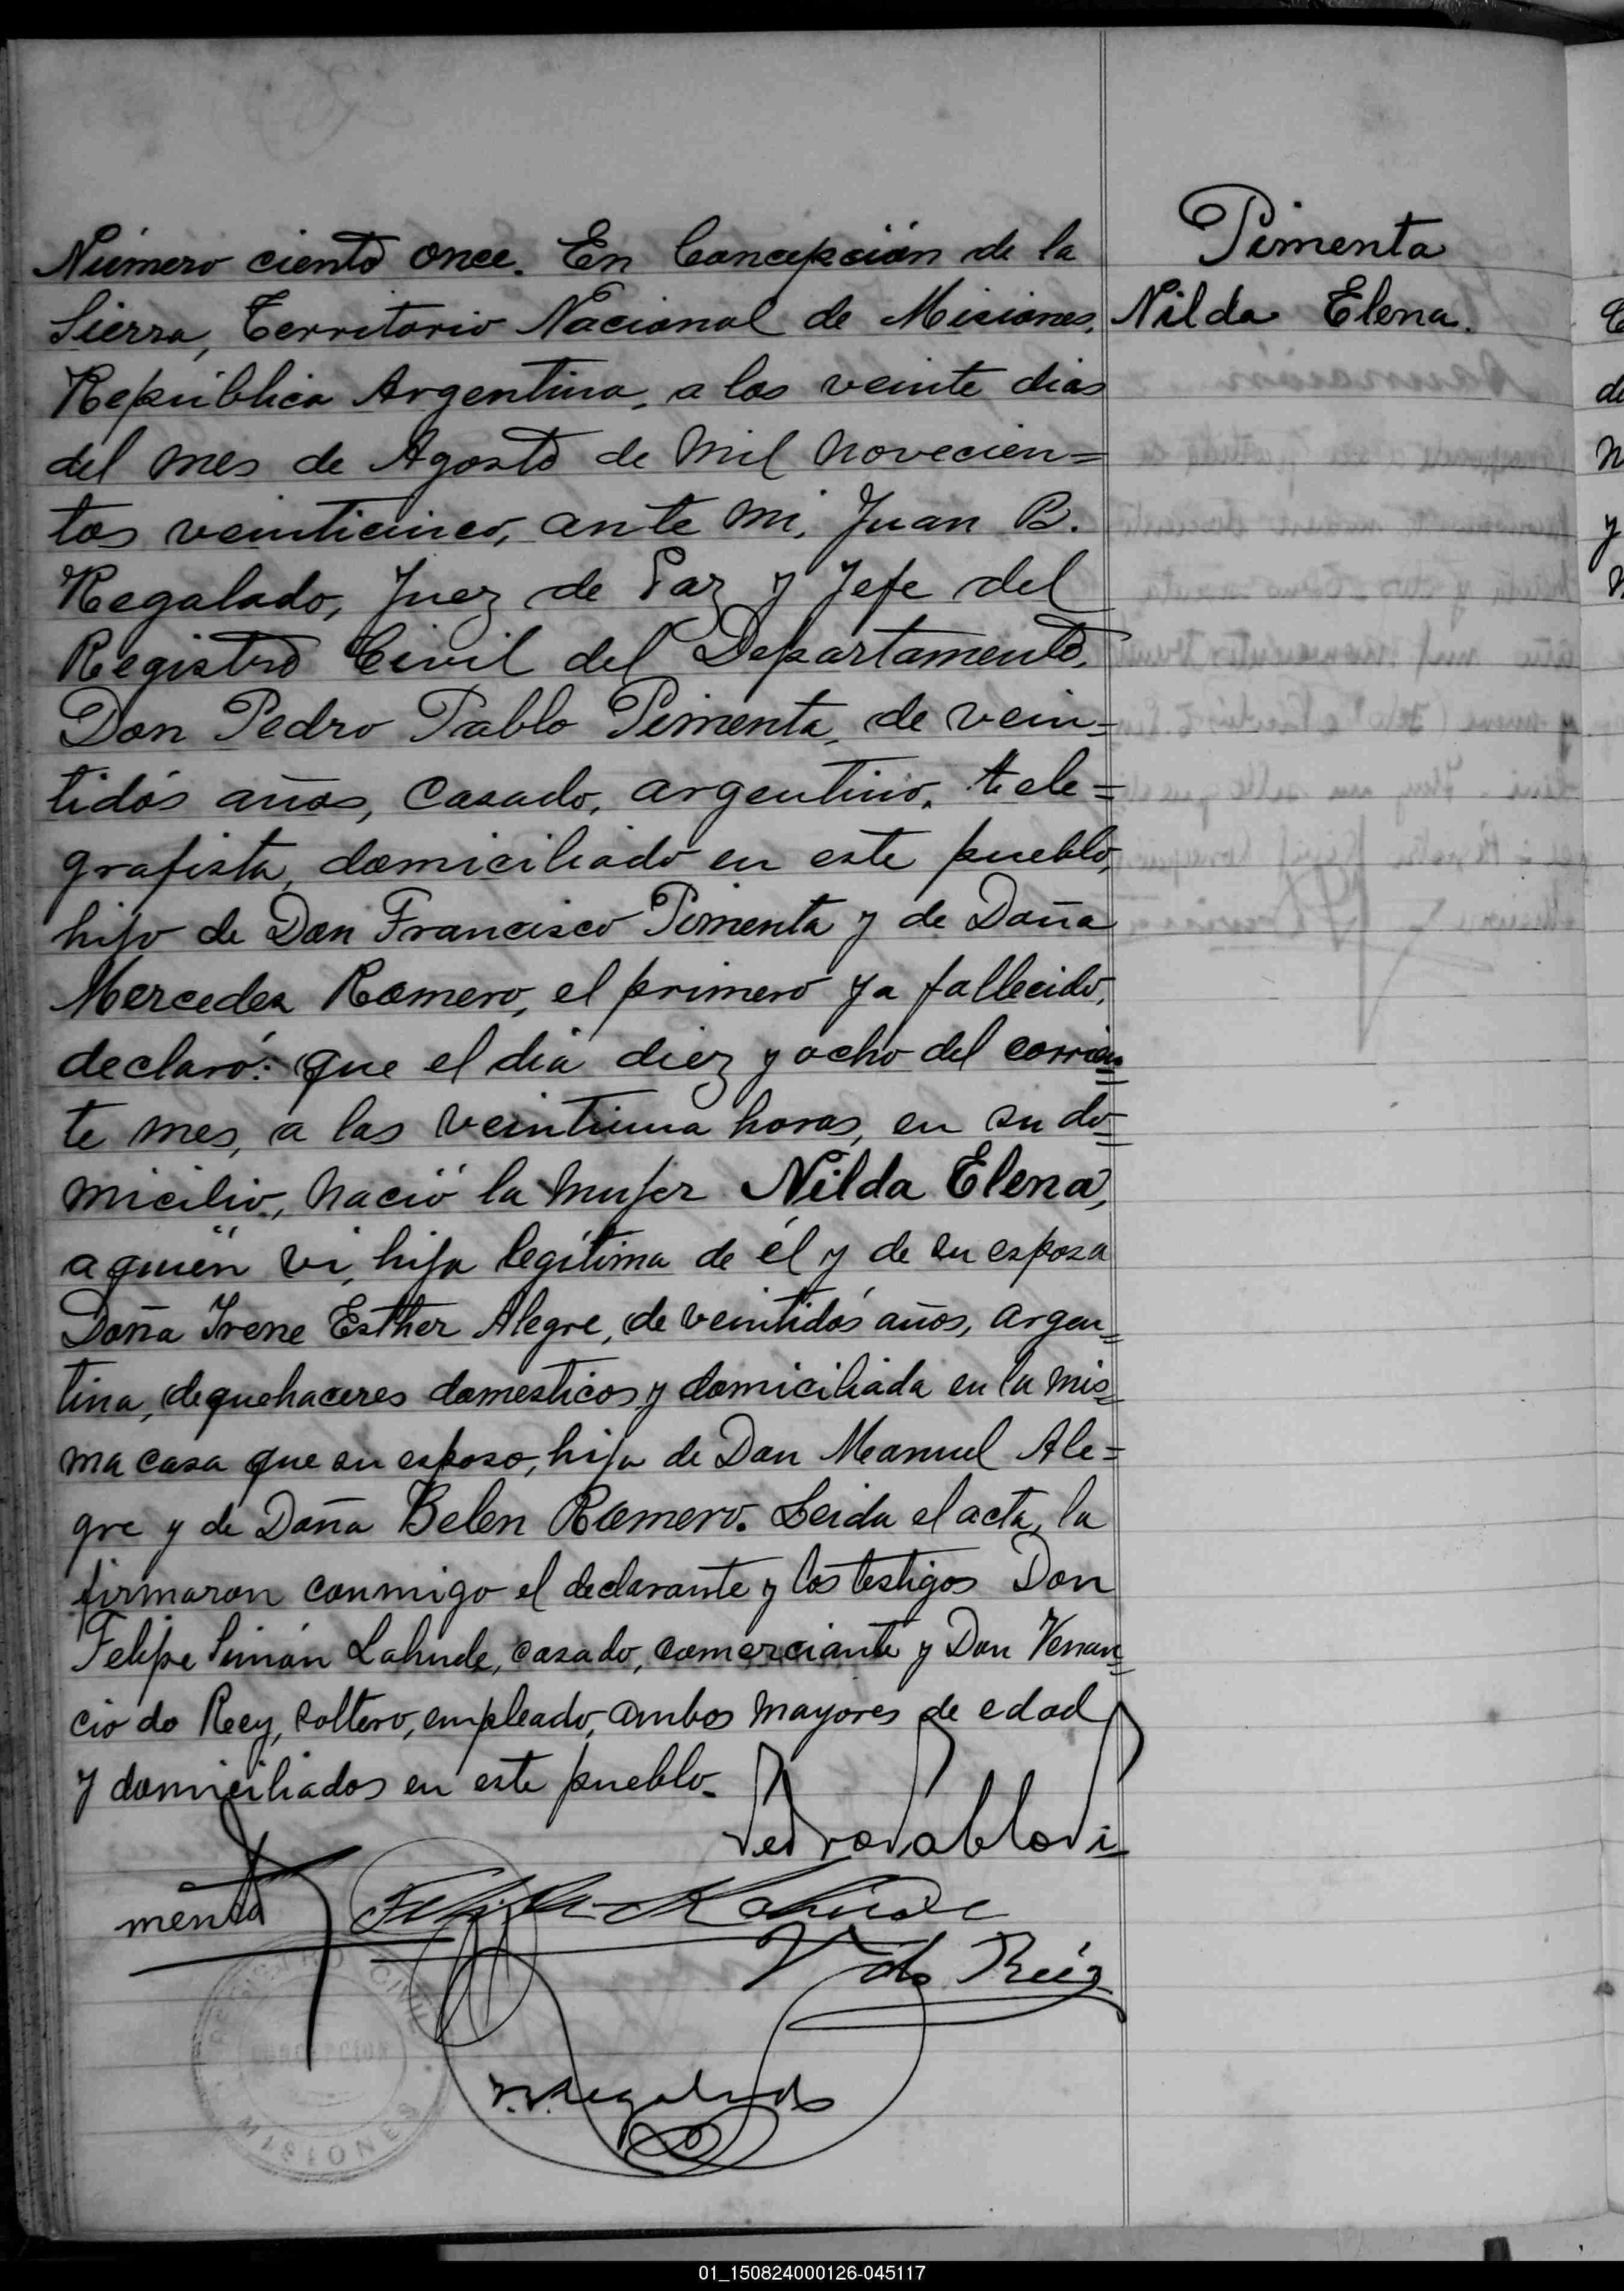 Pimenta
Nilda Elena.
Número ciento once. En Concepción de la
Sierra, Territorio Nacional de Misiones,
República Argentina, a los veinte dias
del mes de Agosto de mil novecien=
tos veinticinco, ante mi, Juan B.
Regalado, Juez de Paz y Jefe del
Registro Civil del Departamento,
Don Pedro Pablo Pimenta, de vein=
tidós años, casado, argentino, tele=
grafista, domiciliado en este pueblo,
hijo de Don Francisco Pimenta y de Doña
Mercedes Romero, el primero ya fallecido,
declaró: que el dia diez y ocho del corrien=
te mes, a las veintiuna horas, en su do=
micilio, nació la mujer Nilda Elena,
a quien vi, hija legítima de él y de su esposa
Doña Irene Esther Alegre, de veintidós años, argen=
tina, de quehaceres domesticos y domiciliada en la mis=
ma casa que su esposo, hija de Don Manuel Ale=
gre y de Doña Belen Romero. Leida el acta, la
firmaron conmigo el declarante y los testigos Don
Felipe Simón Lahude, casado, comerciante y Don Venan=
cio do Reey, soltero, empleado, ambos mayores de edad
y domiciliados en este pueblo.
Pedro Pablo Pi=
menta
Felipe Lahude
V do Reéz
Regalado
REGISTRO CIVIL
MISIONES
01_150824000126-045117